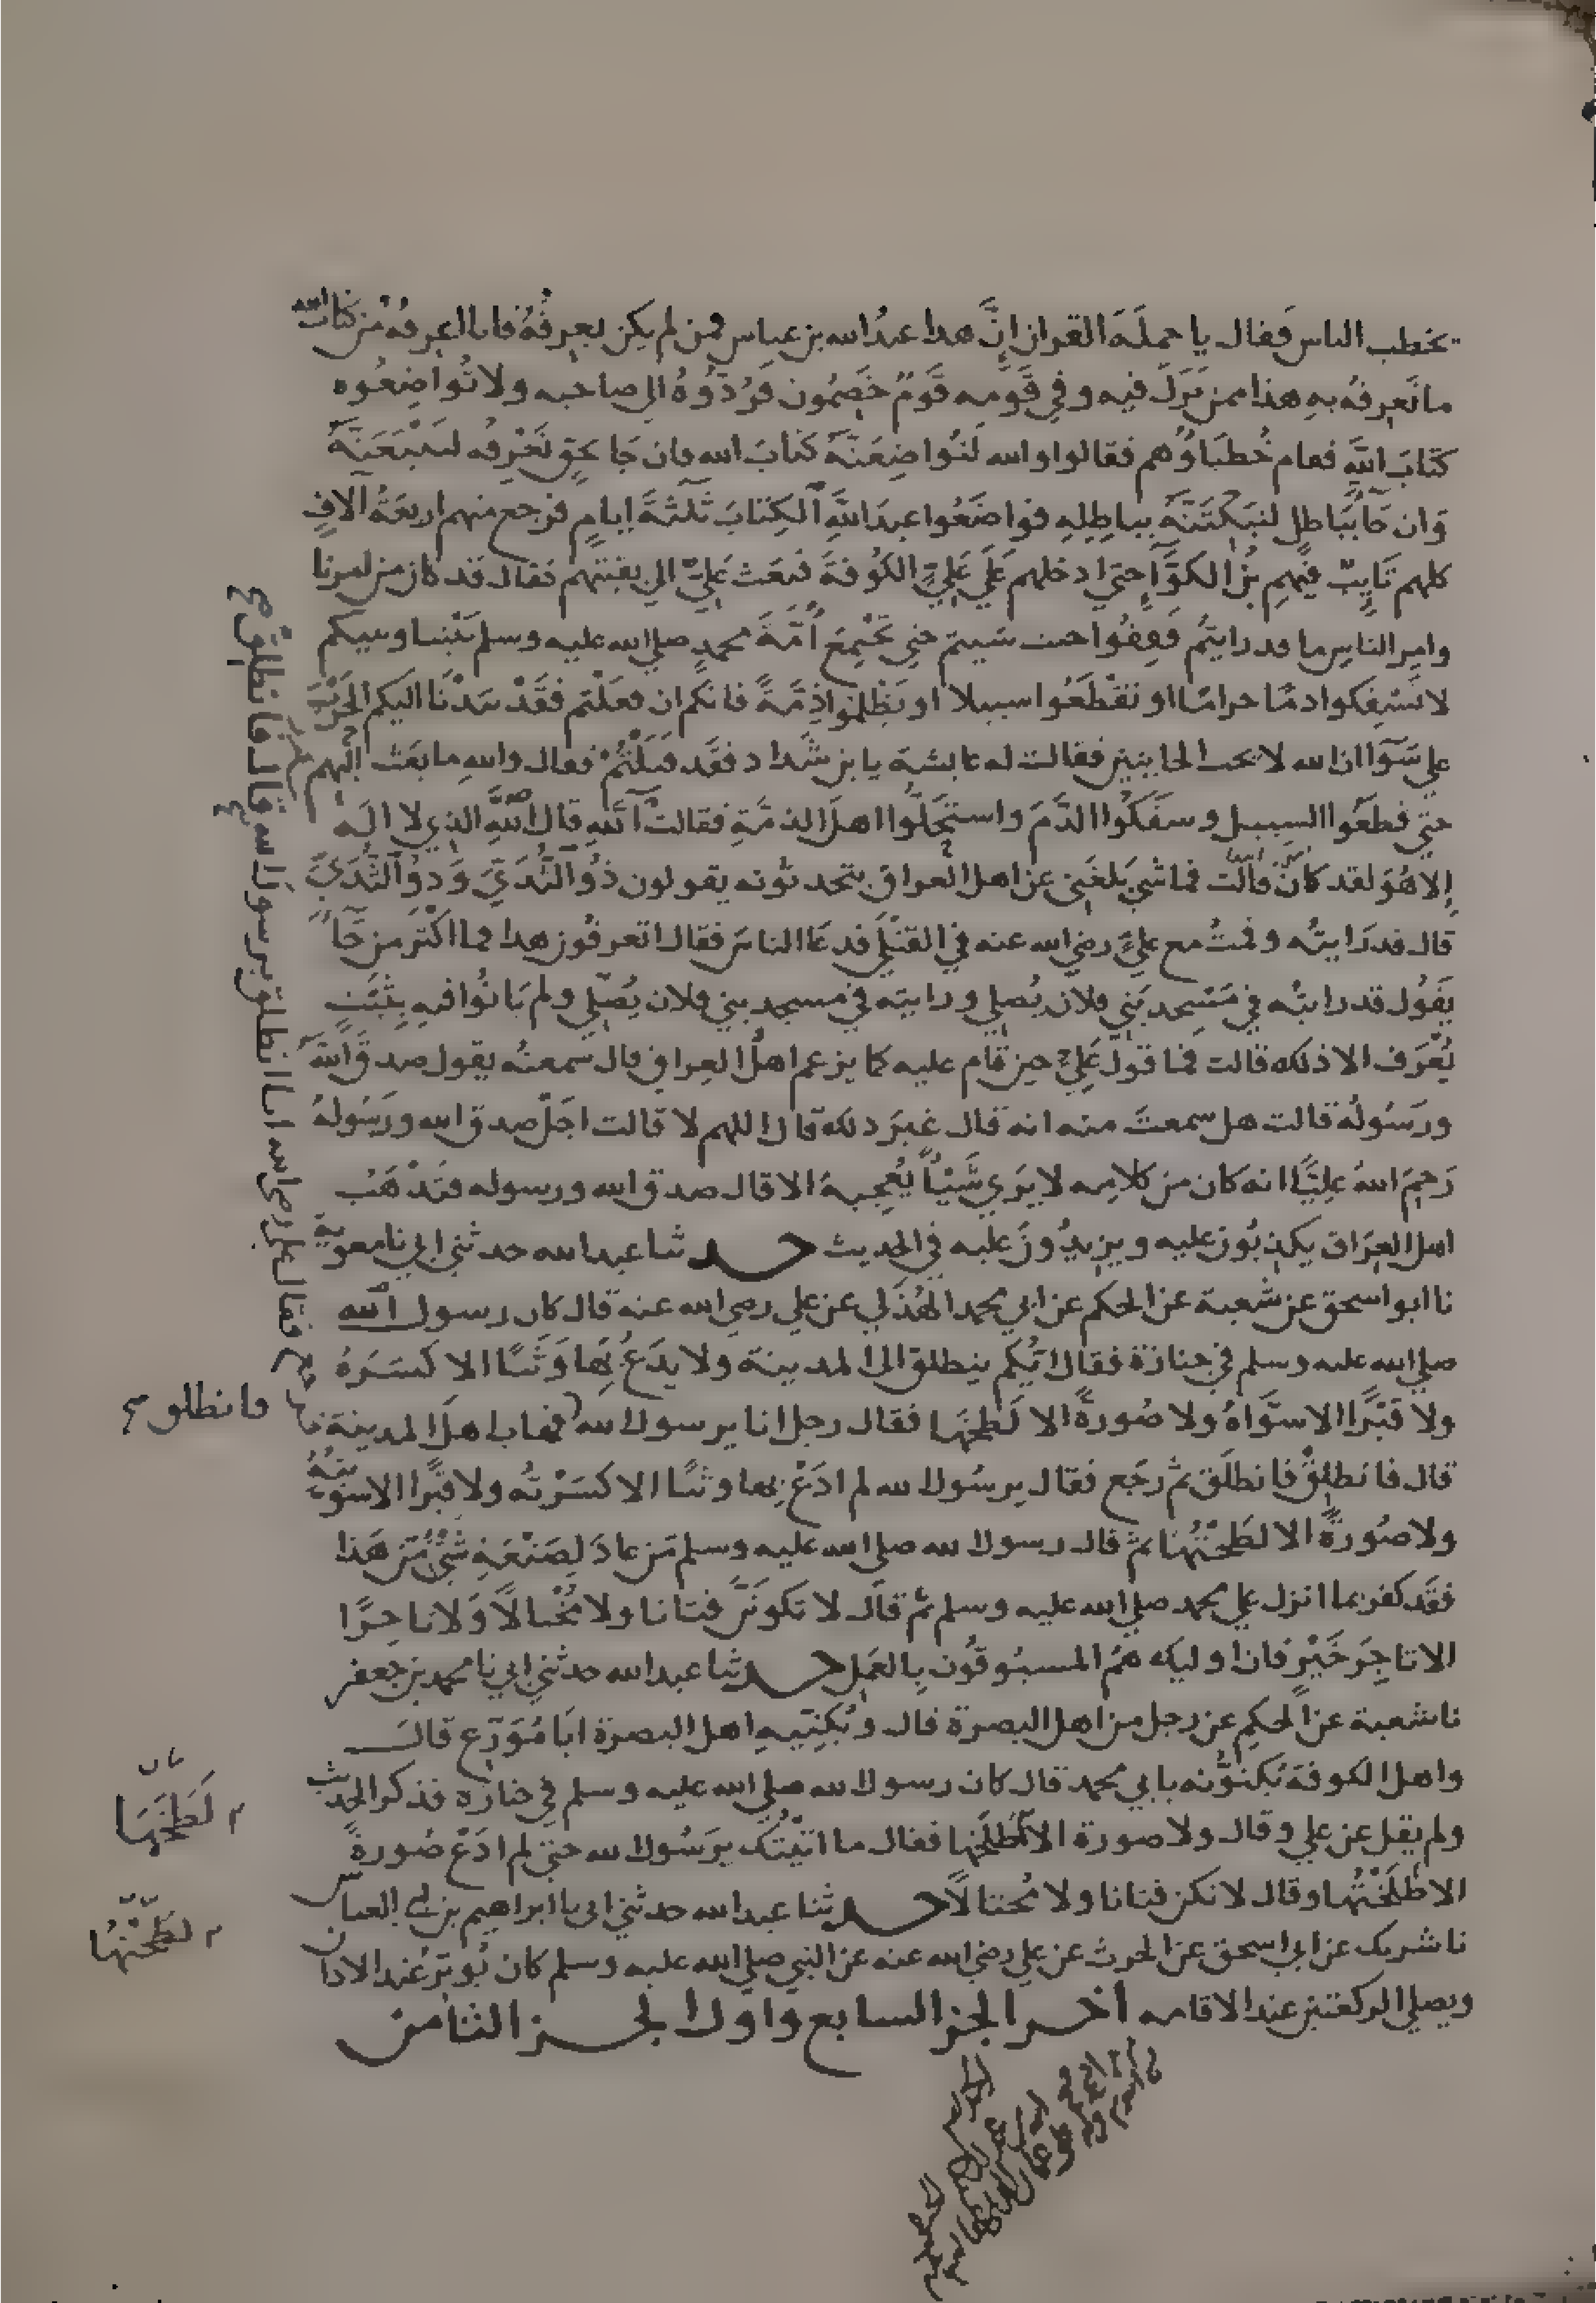 يخطب الناس فقال يا حملة القران إنّ هذا عبدُ الله بن عباس فمن لم يكن يعرفُهُ فانا اعرفه من كتاب الله
ما نعرفُهُ به هذا ممن نَزَلَ فيه وفي قَومه قَومٌ خَصِمُون فَرُدُّوهُ الى صاحبه ولا تُواضِعُوه
كتابَ اللهِ فقام خُطبَاؤهم فقالوا والله لَنُواضِعَنَّهُ كتابَ الله فان جَا بحقٍ نَعْرِفه لنَتَّبِعَنَّهُ
وَان جَا بِبَاطلٍ لنُبَكِّتَنَّهُ بباطِلِهِ فواضَعُوا عبدَ اللهِ الكِتابَ ثَلثَةَ ايامٍ فرجع منهم اربعَةُ آلافٍ
كلهم تَايِبٌ فيهِم بنُ الكوَّا حتي ادخلهم عَلَي عَلِيٍّ الكوُفةَ فبَعَث عَلِيٌّ الي بقيتهم فقال قد كان من امرنا
وامرِ الناسِ ما قد رايتُم فَقِفُوا حيث شيتم حتي تَجْتَمِعَ أمّةُ محمدٍ صلي الله عليه وسلم بَيْننا وبينكم
لا تَسْفِكوا دمًا حرامًا او تقْطَعُوا سبيلا او تَظْلِمُوا ذِمَّةً فانكم ان فعَلْتم فقَدْ نبَذْنَا اليكم الحَرْبَ
علي سَوَآ ان الله لا يحب الخاينين فقالت له عايشة يا بن شَداد فقَد قَتَلَهُمْ فقال واللهِ ما بَعَث اليهم
حتي قطَعُوا السبيل وسَفَكُوا الدَّمَ واستَحَلُّوا اهلَ الذمَّةِ فقالت آللهِ قال آللهِ الذي لا الهَ
إلا هُوَ لقد كانَ قالَت فما شي بَلغَنِي عن اهل العراق يتحدثونه يقولون ذُو الثُّدَيِّ وَذو الثُّدَيِّ
قال قد رَايتُه وقمتُ مع عليٍّ رضي الله عنه في القَتْلَي فدعَا الناسَ فقال اتعرفُون هذا فما اكْثَرَ من جَا
يَقُول قد رايتُه في مَسْجد بَني فلان يُصلي ورايته في مسجد بني فلان يُصَلي ولم يَاتُوا فيهِ بِثَبَتٍ
يُعْرَف الا ذلك قالت فما قولُ عَلِيٍّ حين قام عليه كما يزعم اهلُ العراق قال سمعتُه يقول صدقَ اللهُ
ورَسُولُه قالت هل سمعتَ منه انه قال غيرَ ذلك قال اللهم لا قالت اجَل صدق الله ورَسُولهُ
رَحِمَ اللهُ عَلِيًّا انه كان من كلامِه لا يَرَي شَيْئًا يُعْجِبهُ الا قال صدق الله ورسوله فيَذْهَبُ
اهل العِرَاق يكذِبُونَ عليه ويزيدُونَ عليه في الحديث حدثنا عبد الله حدثني ابي نا معوية
نا ابو اسحق عن شعبة عن الحكم عن ابي محمد الهُذَلي عن علي رضي الله عنه قال كان رسول الله
صلي الله عليه وسلم في جنازة فقال ايُّكم ينطلق الى المدينة ولا يدَعُ بِهَا وَثَنًا الا كسَرَهُ
ولا قَبْرًا الا سوَّاهُ ولا صُورةً الا لَطَخَها فقال رجل انا يرسول الله فهاب اهل المدينة
قال فانطلِقْ فانطلَق ثم رجَع فقال يرسُول الله لم ادَعْ بها وثنًا الا كسَرْتُه ولا قبْرًا الا سوَّيتُهُ
ولا صُورةً الا لطَخْتُها ثم قال رسول الله صلي الله عليه وسلم مَن عادَ لِصَنْعَةِ شيْءٍ مِّن هَذا
فقَد كفر بما انزل علي محمد صلي الله عليه وسلم ثم قال لا تكونَنَّ فتانا ولا مُخْتالًا وَلا تاجِرًا
الا تاجِرَ خَيْرٍ فان اوليك هُم المسبُوقُون بِالعَمَل حدثنا عبد الله حدثني ابي نا محمد بن جعفر
نا شعبة عن الحكم عن رجل من اهل البصرة قال ويُكَنِّيهِ اهل البصرة ابَا مُوَرّع قال
واهل الكوفة يُكنوُّنه بابي محمد قال كان رسول الله صلي الله عليه وسلم في جنازة فذكر الحديث
ولم يقل عن علي وقال ولا صورة الا طلَخَها فقال ما اتيْتُك يرَسُول الله حتي لم ادَعْ صُورةً
الا طَلَخْتُها وقال لا تكن فتانا ولا مُختالًا حدثنا عبد الله حدثني ابي نا ابراهيم بن ابي العباس
نا شريك عن ابي اسحق عن الحرث عن علي رضي الله عنه عن النبي صلي الله عليه وسلم كان يُوتِرُ عند الاذان
ويصلي الركعتين عند الاقامه اخر الجز السابع واول الجز الثامن
فقال علي رضي الله انا انطلق يرسول الله قال فانطلق
فانطلق
لَطَخَهَا
لطَخْتُهَا